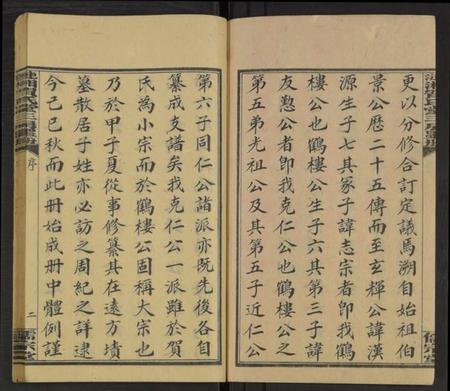 更以分修合訂定議焉溯自始祖伯
景公歷二十五傳而至玄輝公諱漢
源生子七其冢子諱志宗者卽我鶴
樓公也鶴樓公生子六其第三子諱
友憝公者卽我克仁公也鶴樓公之
五弟光祖公及其第五子近仁公
第六子同仁公諸派亦旣先後各自
纂成支譜矣我克仁公一派雖於賀
氏爲小宗而於鶴樓公固稱大宗也
乃於甲子夏從事修纂其在遠方墳
墓散居子姓亦必訪之周紀之詳逮
今己巳秋而此册始成册中體例謹
序
二